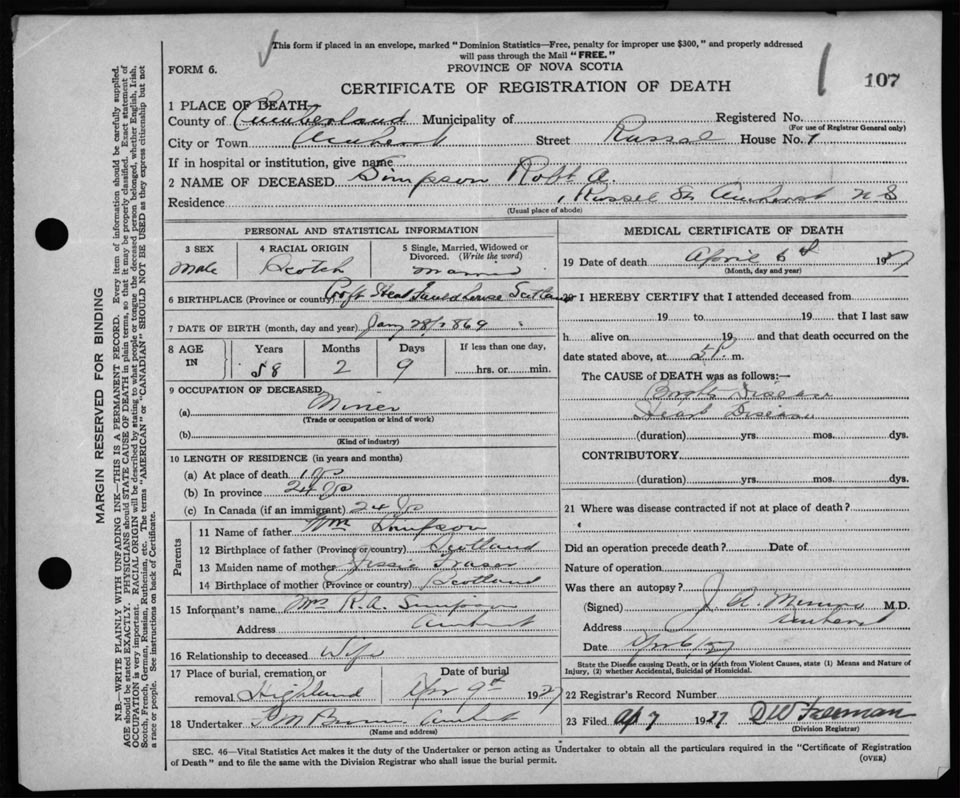 This form if placed in an envelope, marked "Dominion Statistics—Free, penalty for improper use $300," and properly addressed
will pass through the Mail "FREE."
FORM 6.
PROVINCE OF NOVA SCOTIA
107
CERTIFICATE OF REGISTRATION OF DEATH
1 PLACE OF DEATH
County of Cumberland Municipality of Registered No.
(For use of Registrar General only)
City or Town Amherst Street Russel House No. 1
If in hospital or institution, give name
2 NAME OF DECEASED Simpson Robt A.
Residence 1 Russel St Amherst N S
(Usual place of abode)
PERSONAL AND STATISTICAL INFORMATION
3 SEX 4 RACIAL ORIGIN 5 Single, Married, Widowed or
Divorced. (Write the word)
Male Scotch Married
6 BIRTHPLACE (Province or country) Croft Head Fauldhouse Scotland
7 DATE OF BIRTH (month, day and year) Jany 28/1869
8 AGE IN Years Months Days If less than one day,
58 2 9 hrs. or min.
9 OCCUPATION OF DECEASED
(a) Miner
(Trade or occupation or kind of work)
(b)
(Kind of industry)
10 LENGTH OF RESIDENCE (in years and months)
(a) At place of death
(b) In province 24
(c) In Canada (if an immigrant) 24
Parents
11 Name of father Wm Simpson
12 Birthplace of father (Province or country) Scotland
13 Maiden name of mother Jessie Fraser
14 Birthplace of mother (Province or country) Scotland
15 Informant's name Mrs R. A. Simpson
Address Amherst
16 Relationship to deceased Wife
17 Place of burial, cremation or Date of burial
removal Highland Apr 9th 1927
18 Undertaker Brown Amherst
(Name and address)
MEDICAL CERTIFICATE OF DEATH
19 Date of death April 6th 1927
(Month, day and year)
20 I HEREBY CERTIFY that I attended deceased from
19 to 19 that I last saw
h alive on 19 and that death occurred on the
date stated above, at 5 P. m.
The CAUSE of DEATH was as follows:—
Brights Disease
Heart Disease
(duration) yrs. mos. dys.
CONTRIBUTORY
(duration) yrs. mos. dys.
21 Where was disease contracted if not at place of death?
Did an operation precede death? Date of
Nature of operation
Was there an autopsy?
(Signed) J. A. M.D.
Address Amherst
Date Apr 6/27
State the Disease causing Death, or in death from Violent Causes, state (1) Means and Nature of
Injury, (2) whether Accidental, Suicidal or Homicidal.
22 Registrar's Record Number
23 Filed Ap 7 1927 DW Freeman
(Division Registrar)
SEC. 46—Vital Statistics Act makes it the duty of the Undertaker or person acting as Undertaker to obtain all the particulars required in the "Certificate of Registration
of Death" and to file the same with the Division Registrar who shall issue the burial permit.
(OVER)
MARGIN RESERVED FOR BINDING
N.B.—WRITE PLAINLY WITH UNFADING INK—THIS IS A PERMANENT RECORD. Every item of information should be carefully supplied.
AGE should be stated EXACTLY. PHYSICIANS should STATE CAUSE OF DEATH in plain terms, so that it may be properly classified. Exact statement of
OCCUPATION is very important. RACIAL ORIGIN will be described by stating to what people or tongue the deceased person belonged, whether English, Irish,
Scotch, French, German, Russian, Ruthenian, etc. The terms "AMERICAN" or "CANADIAN" SHOULD NOT BE USED as they express citizenship but not
a race or people. See instructions on back of Certificate.